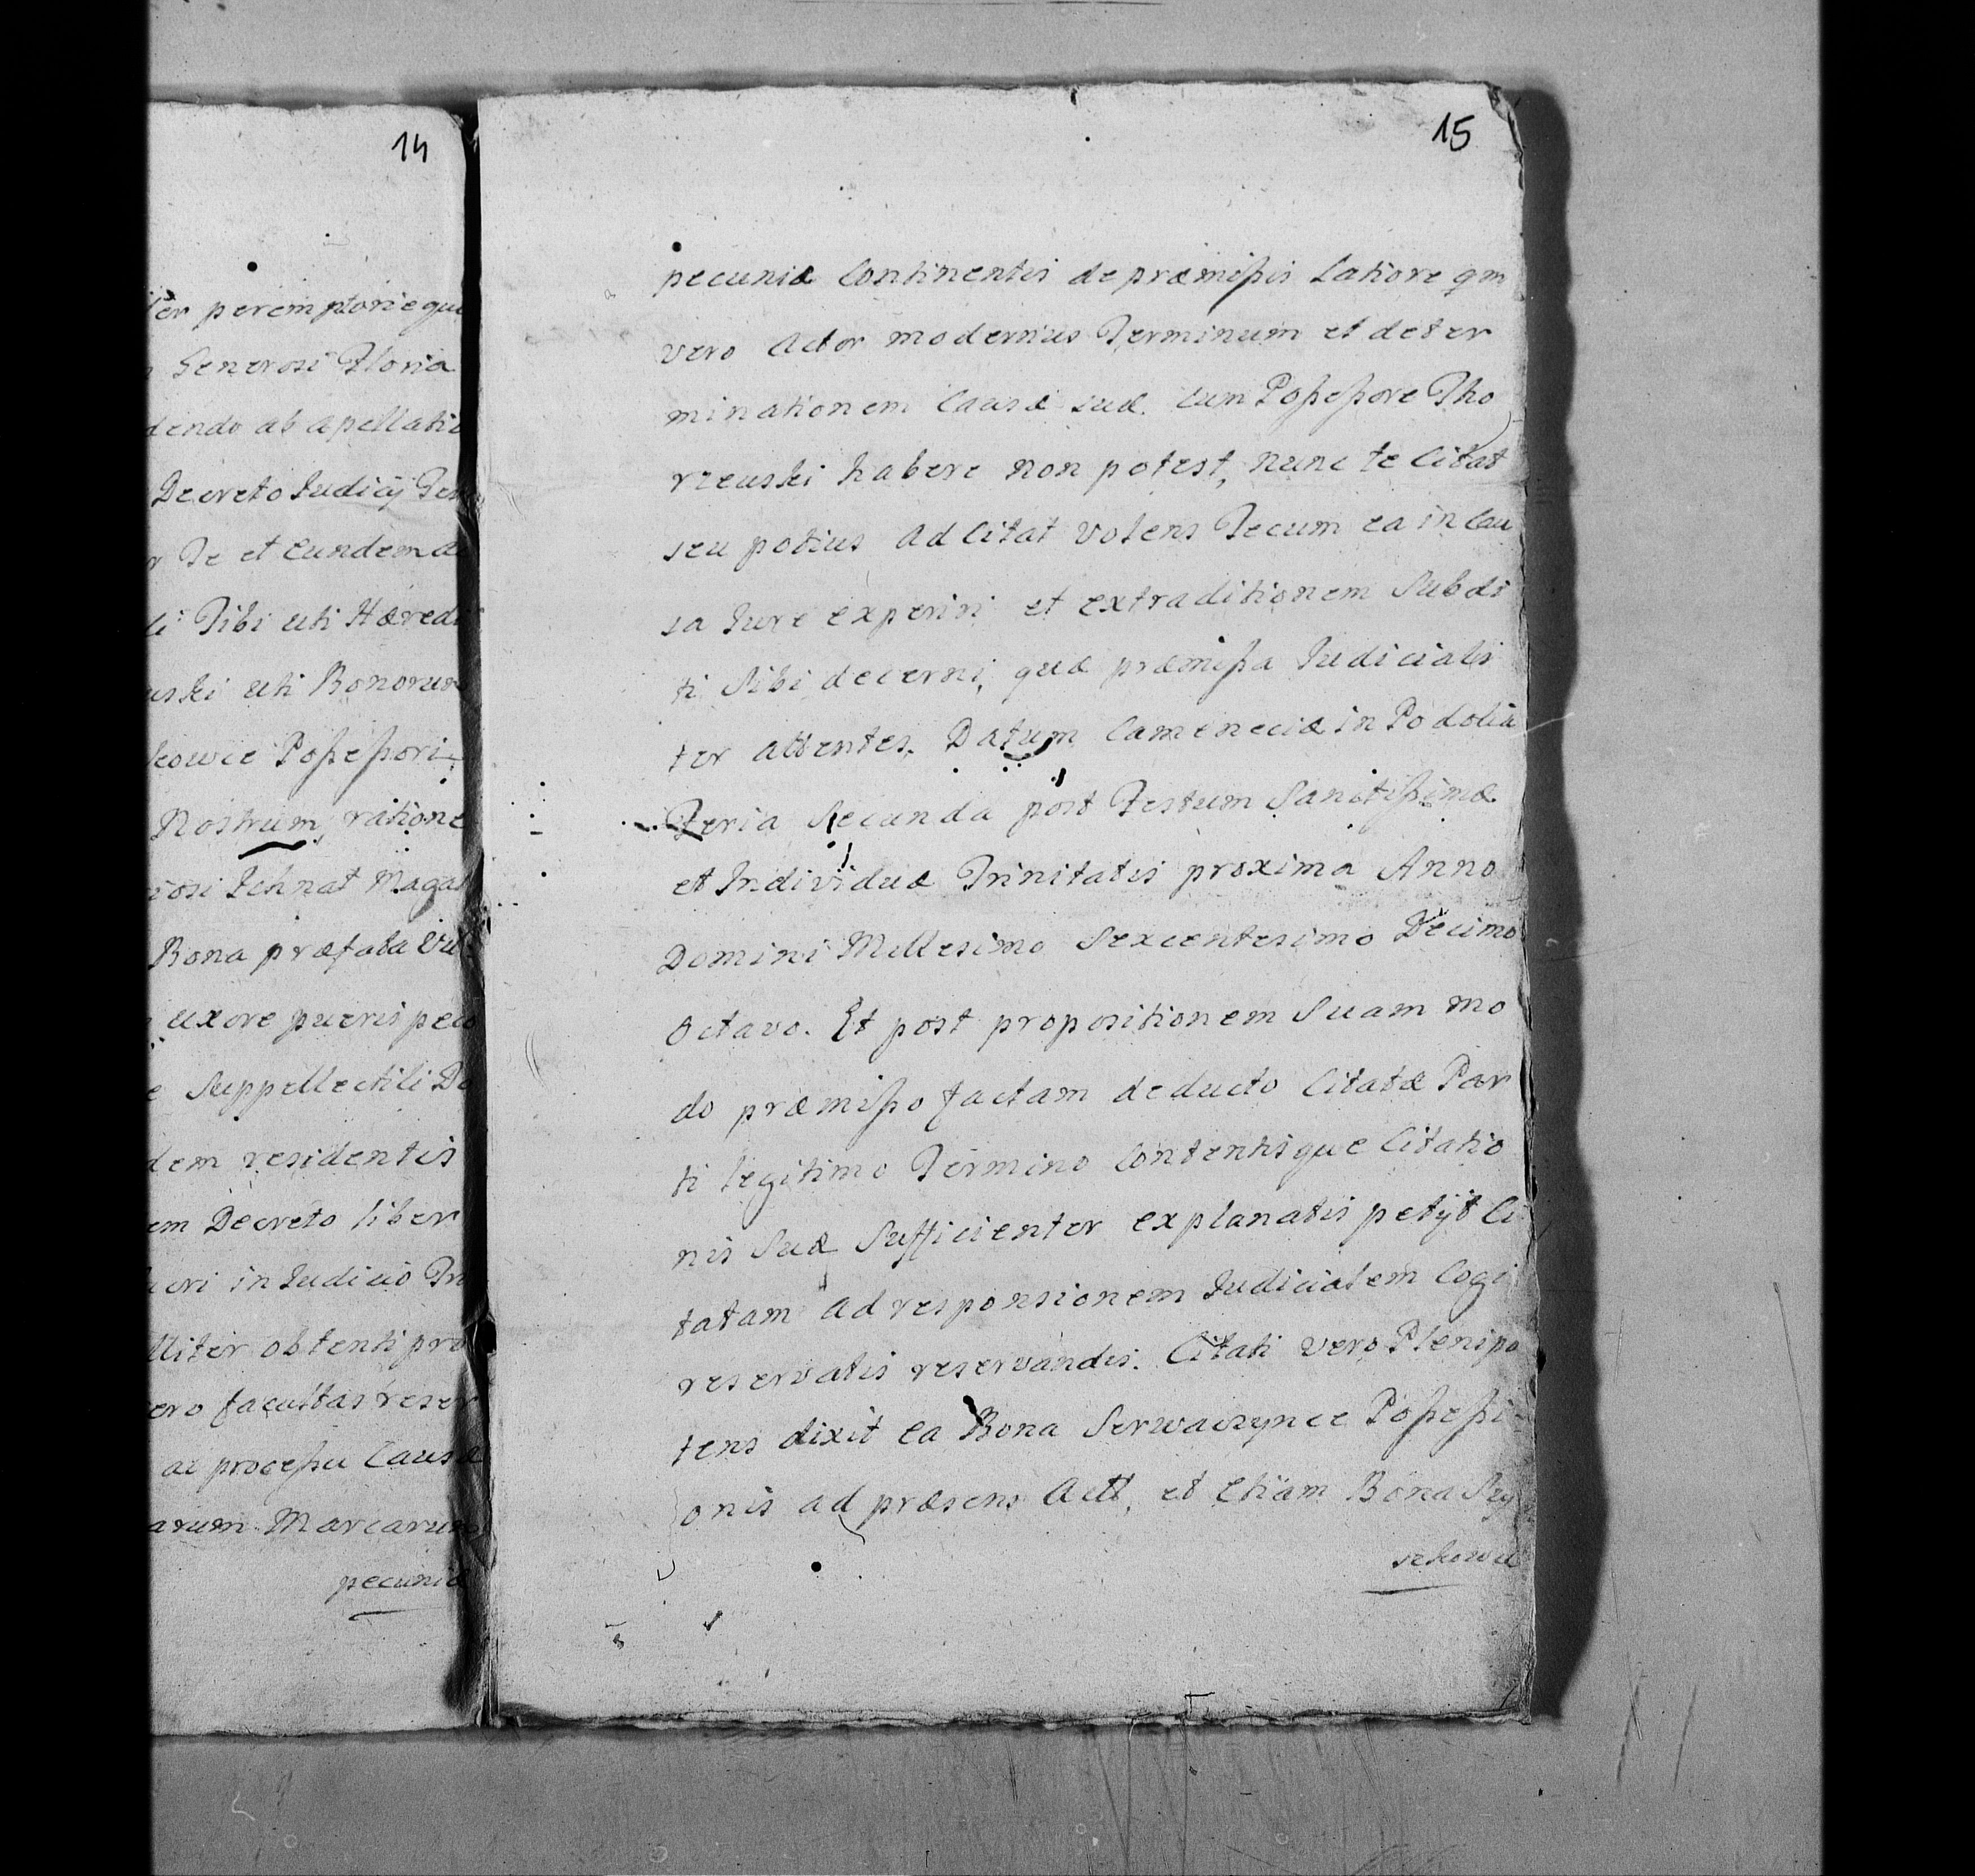 14
er peremptorie que
Generosi Floria
dendo ab apellatio
Decreto Iudicÿ Ter
r Te et Eundem a
di Tibi uti Hæredi
uski uti Bonorum
kowce Poßeßori
Nostrum, ratione
iosi Ichnat Magal
Bona præfata Vil
uxore pueris peco
e Suppellectili Do
dem residentis
em Decreto liber
uori in Iudicio Tri
lliter obtenti pro
ero facultas reser
ac proceßu Causæ
arum Marcarum
pecuniæ
15
pecuniæ Continentis de præmißis Latiore qm
vero Actor modernus Terminum et deter
minationem Causæ suæ cum Poßeßore Tho
rzeuski habere non potest, nunc te Citat
seu potius Ad Citat volens Tecum ea in Cau
sa Iure experiri et extraditionem Subdi
ti Sibi decerni, quæ præmißa Iudiciali
ter attentes. Datum Cameneciæ in Podolia
Feria Secunda post Festum Sanctißimæ
et Individuæ Trinitatis proxima Anno
Domini Millesimo Sexcentesimo Decimo
Octavo. Et post propositionem Suam mo
do præmißo factam deducto Citatæ Par
ti legitimo Termino Contentisque Citatio
nis Suæ Sufficienter explanatis petÿt Ci
tatam ad responsionem Iudicialem Cogi
reservatis reservandis. Citati vero Plenipo
tens dixit ea Bona Serwaczynce Poßeßi
onis ad præsens Actt, et Etiam Bona Szy
szkowce